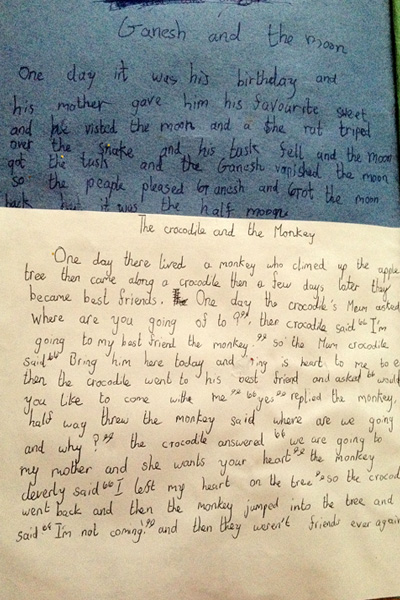 Ganesh and the moon
One day it was his birthday and
his mother gave him his favourite sweet
and he visted the moon and a she rat triped
over the snake and his tusk fell and the moon
got the tusk and the Ganesh vanished the moon
so the people pleased Ganesh and Grot the moon
back but it was the half moon
The crocodile and the Monkey
One day there lived a monkey who climed up the apple
tree then came along a crocodile then a few days later they
became best friends. One day the crocodile's Mum asked
where are you going of to?" then crocodile said "I'm
going to my best friend the monkey." so the Mum crocodile
said "Bring him here today and is heart to me to e
then the crocodile went to his best friend and asked "would
you like to come withe me" "yes" replied the monkey,
half way threw the monkey said where are we going
and why?" the crocodile answered "we are going to
my mother and she wants your heart" the monkey
cleverly said "I left my heart on the tree" so the crocod
went back and then the monkey jumped into the tree and
said "I'm not coming." and then they weren't friends ever again